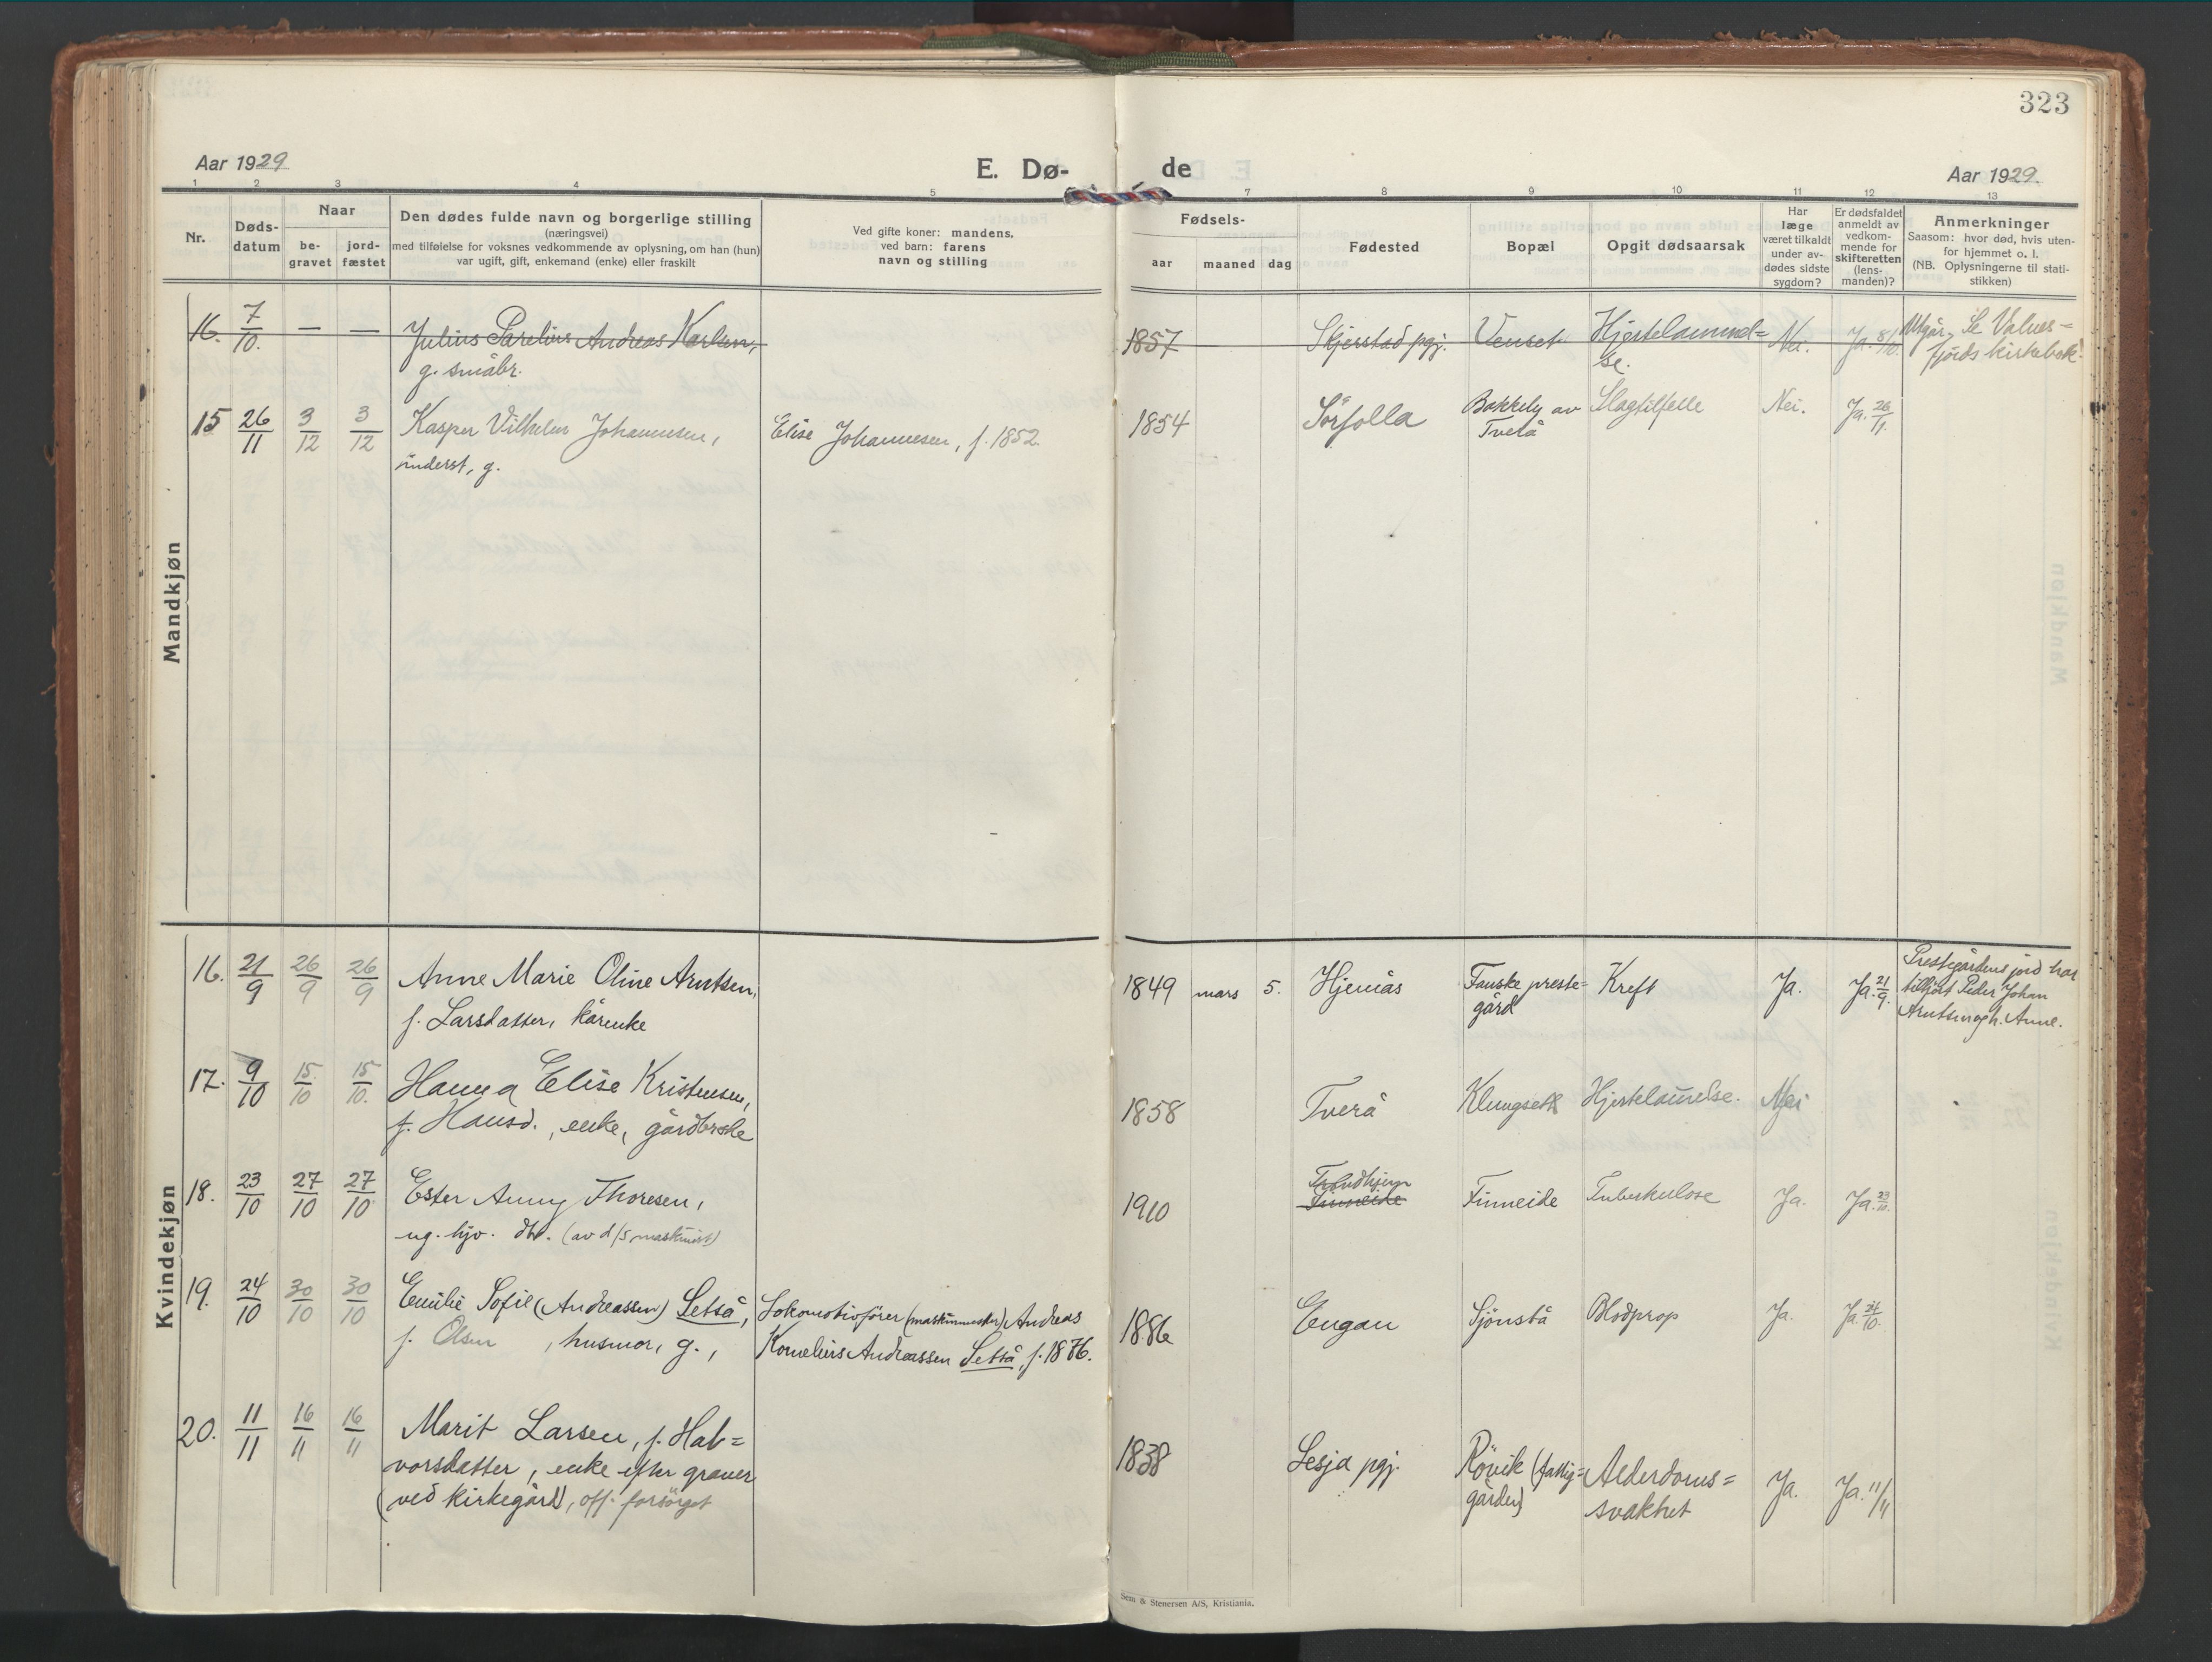 323
Aar 1929
E. Dø-
de
Aar 1929.
1 2 3 4 5 7 8 9 10 11 12 13
Nr.
Døds-
datum
Naar
be-
gravet
jord-
fæstet
Den dødes fulde navn og borgerlige stilling
(næringsvei)
med tilføielse for voksnes vedkommende av oplysning, om han (hun)
var ugift, gift, enkemand (enke) eller fraskilt
Ved gifte koner: mandens,
ved barn: farens
navn og stilling
Fødsels-
aar maaned dag
Fødested
Bopæl
Opgit dødsaarsak
Har
læge
været tilkaldt
under av-
dødes sidste
sygdom?
Er dødsfaldet
anmeldt av
vedkom-
mende for
skifteretten
(lens-
manden)?
Anmerkninger
Saasom: hvor død, hvis uten-
for hjemmet o. l.
(NB. Oplysningerne til stati-
stikken)
Mandkjøn
16. 7/10. — — Julius Parelius Andreas Karlsen, 1857 Skjerstad pgj. Venset Hjertelammel= Nei. Ja. 8/10. Utgår, Se Valnes=
g. småbr. se. fjords kirkebok.
15 26/11 3/12 3/12 Kasper Vilhelm Johannesen, Elise Johannesen, f. 1852. 1854 Sørfolla Bakkely av Slagtilfelle Nei. Ja. 26/11.
inderst, g. Tverå
Kvindekjøn
16. 21/9 26/9 26/9 Anne Marie Oline Arntsen, 1849 mars 5. Hjemås Fauske preste= Kreft Ja. Ja. 21/9. Prestegårdens jord har
f. Larsdatter, kårenke gård tilhjört Peder Johan
Arntsen og h. Anne.
17. 9/10 15/10 15/10. Hanna Elise Kristensen, 1858 Tverå Klungseth Hjertelammelse. Nei
f. Hansd., enke, gårdbrske
18. 23/10 27/10 27/10 Ester Anny Thoresen, 1910 Trondhjem Finneide Tuberkulose Ja. Ja. 23/10.
Finneide
ug. hjv. dtr. (av d/s maskinist)
19. 24/10 30/10 30/10 Emilie Sofie (Andreassen) Setså, Lokomotivfører (maskinmester) Andreas 1886 Engan Sjønstå Blodprop Ja. Ja. 24/10.
f. Olsen, husmor, g., Kornelius Andreassen Setså, f. 1876.
20. 11/11 16/11 16/11 Marit Larsen, f. Hal= 1838 Lesja pgj. Røvik (fattig= Alderdoms= Ja. Ja. 11/11
vorsdatter, enke efter graver gården) svakhet
(ved kirkegård), off. forsørget
Sem & Stenersen A/S, Kristiania.